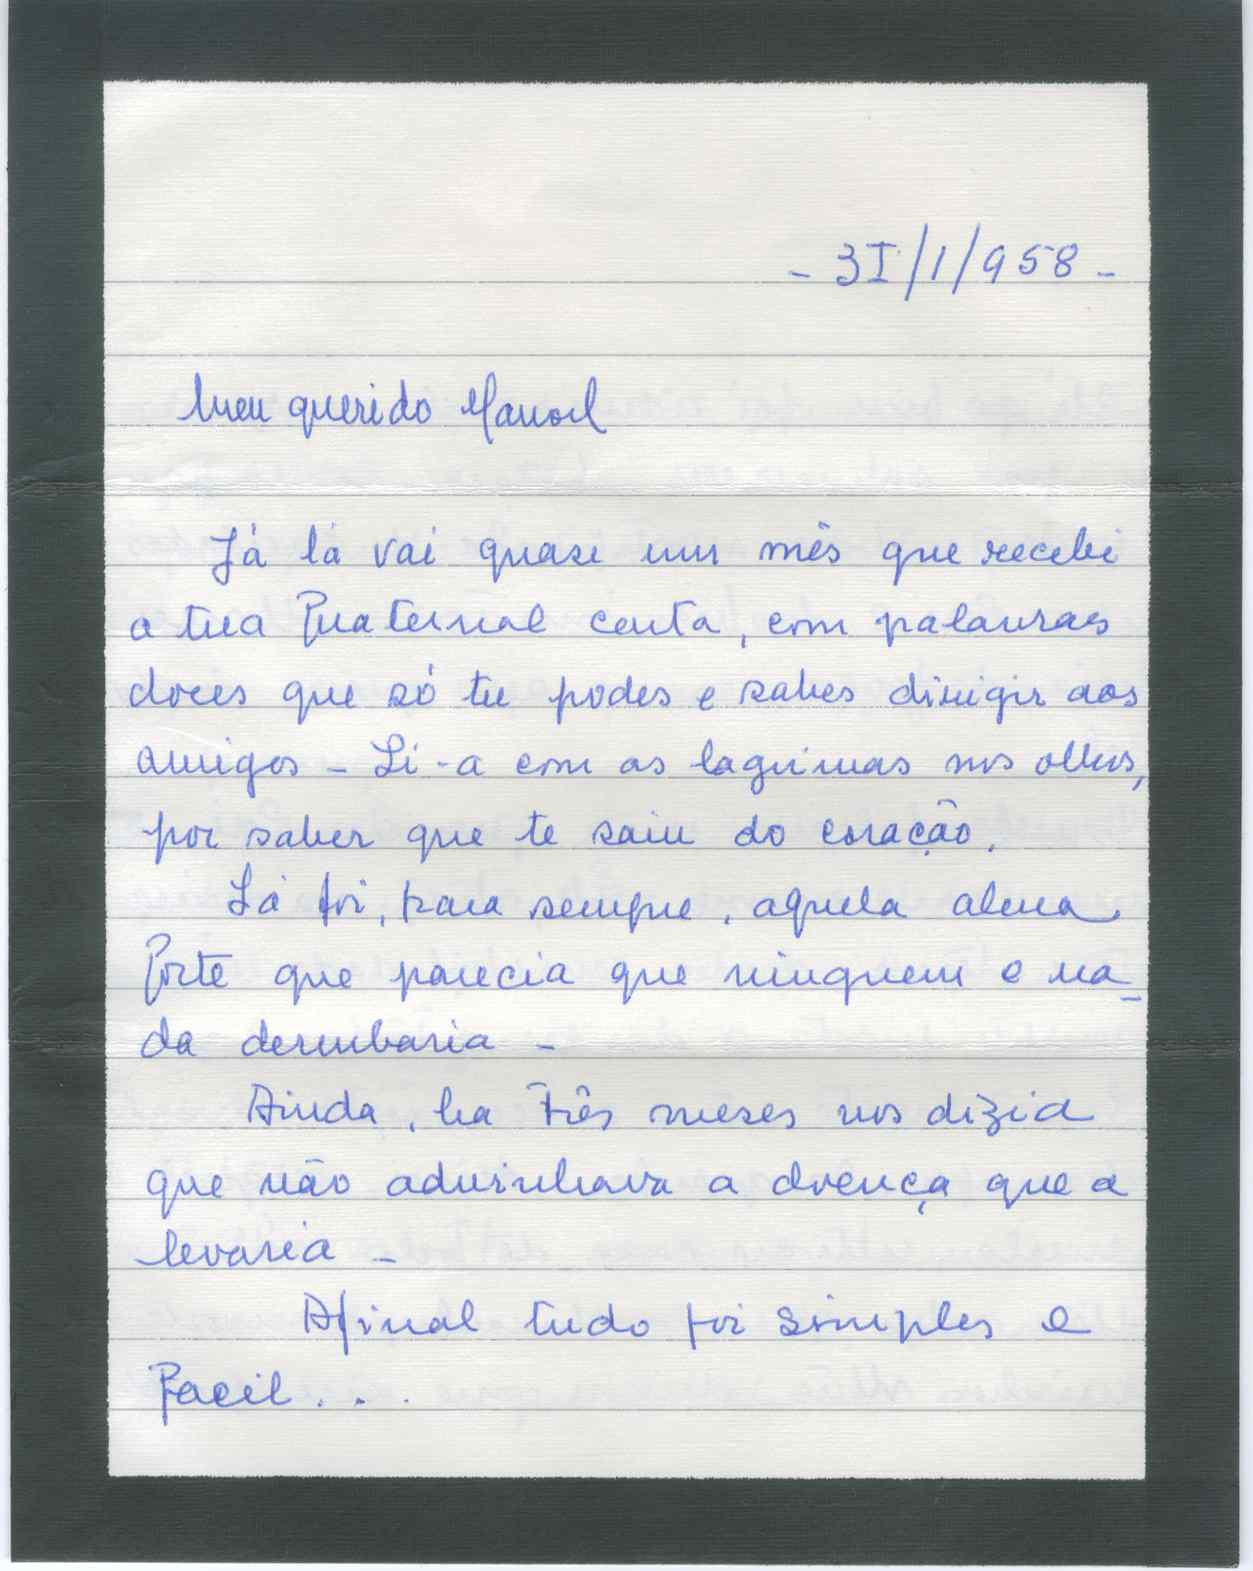 - 3I/1/958 -
Meu querido Manoel
Já lá vai quase um mês que recebi
a tua fraternal carta, com palavras
doces que só tu podes e sabes dirigir aos
amigos - Li-a com as lagrimas nos olhos,
por saber que te saiu do coração.
Lá foi, para sempre, aquela alma
forte que parecia que ninguem e na_
da derrubaria -
Ainda, ha três meses nos dizia
que não advinhava a doença que a
levaria -
Afinal tudo foi simples e
facil...